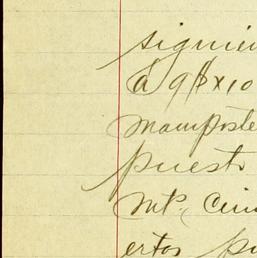 siguien
a 9$ x 10
mamposte
puesto
mtp. Cin
ertos pu